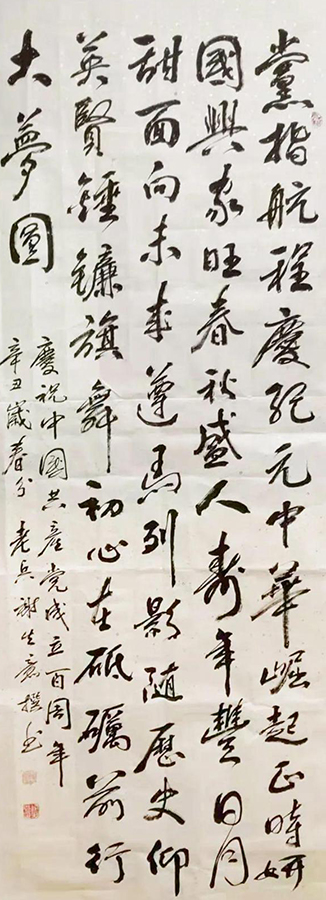 黨指航程慶紀元中華崛起正時妍
國興家旺春秋盛人壽年豐日月
甜面向未來遵馬列影随歷史仰
英賢錘镰旗舞初心在砥礪前行
大夢圓
慶祝中國共產党成立百周年
辛丑歲春分 老兵謝生撰书